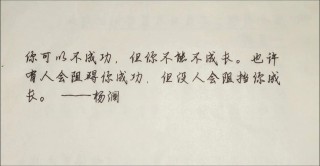 你可以不成功，但你不能不成长。也许
有人会阻碍你成功，但没人会阻挡你成
长。——杨澜